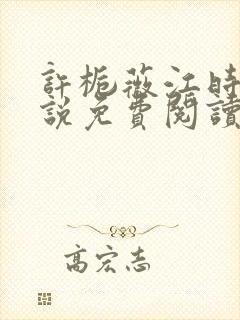 許梔薇江時
說免費閱讀
高宏志